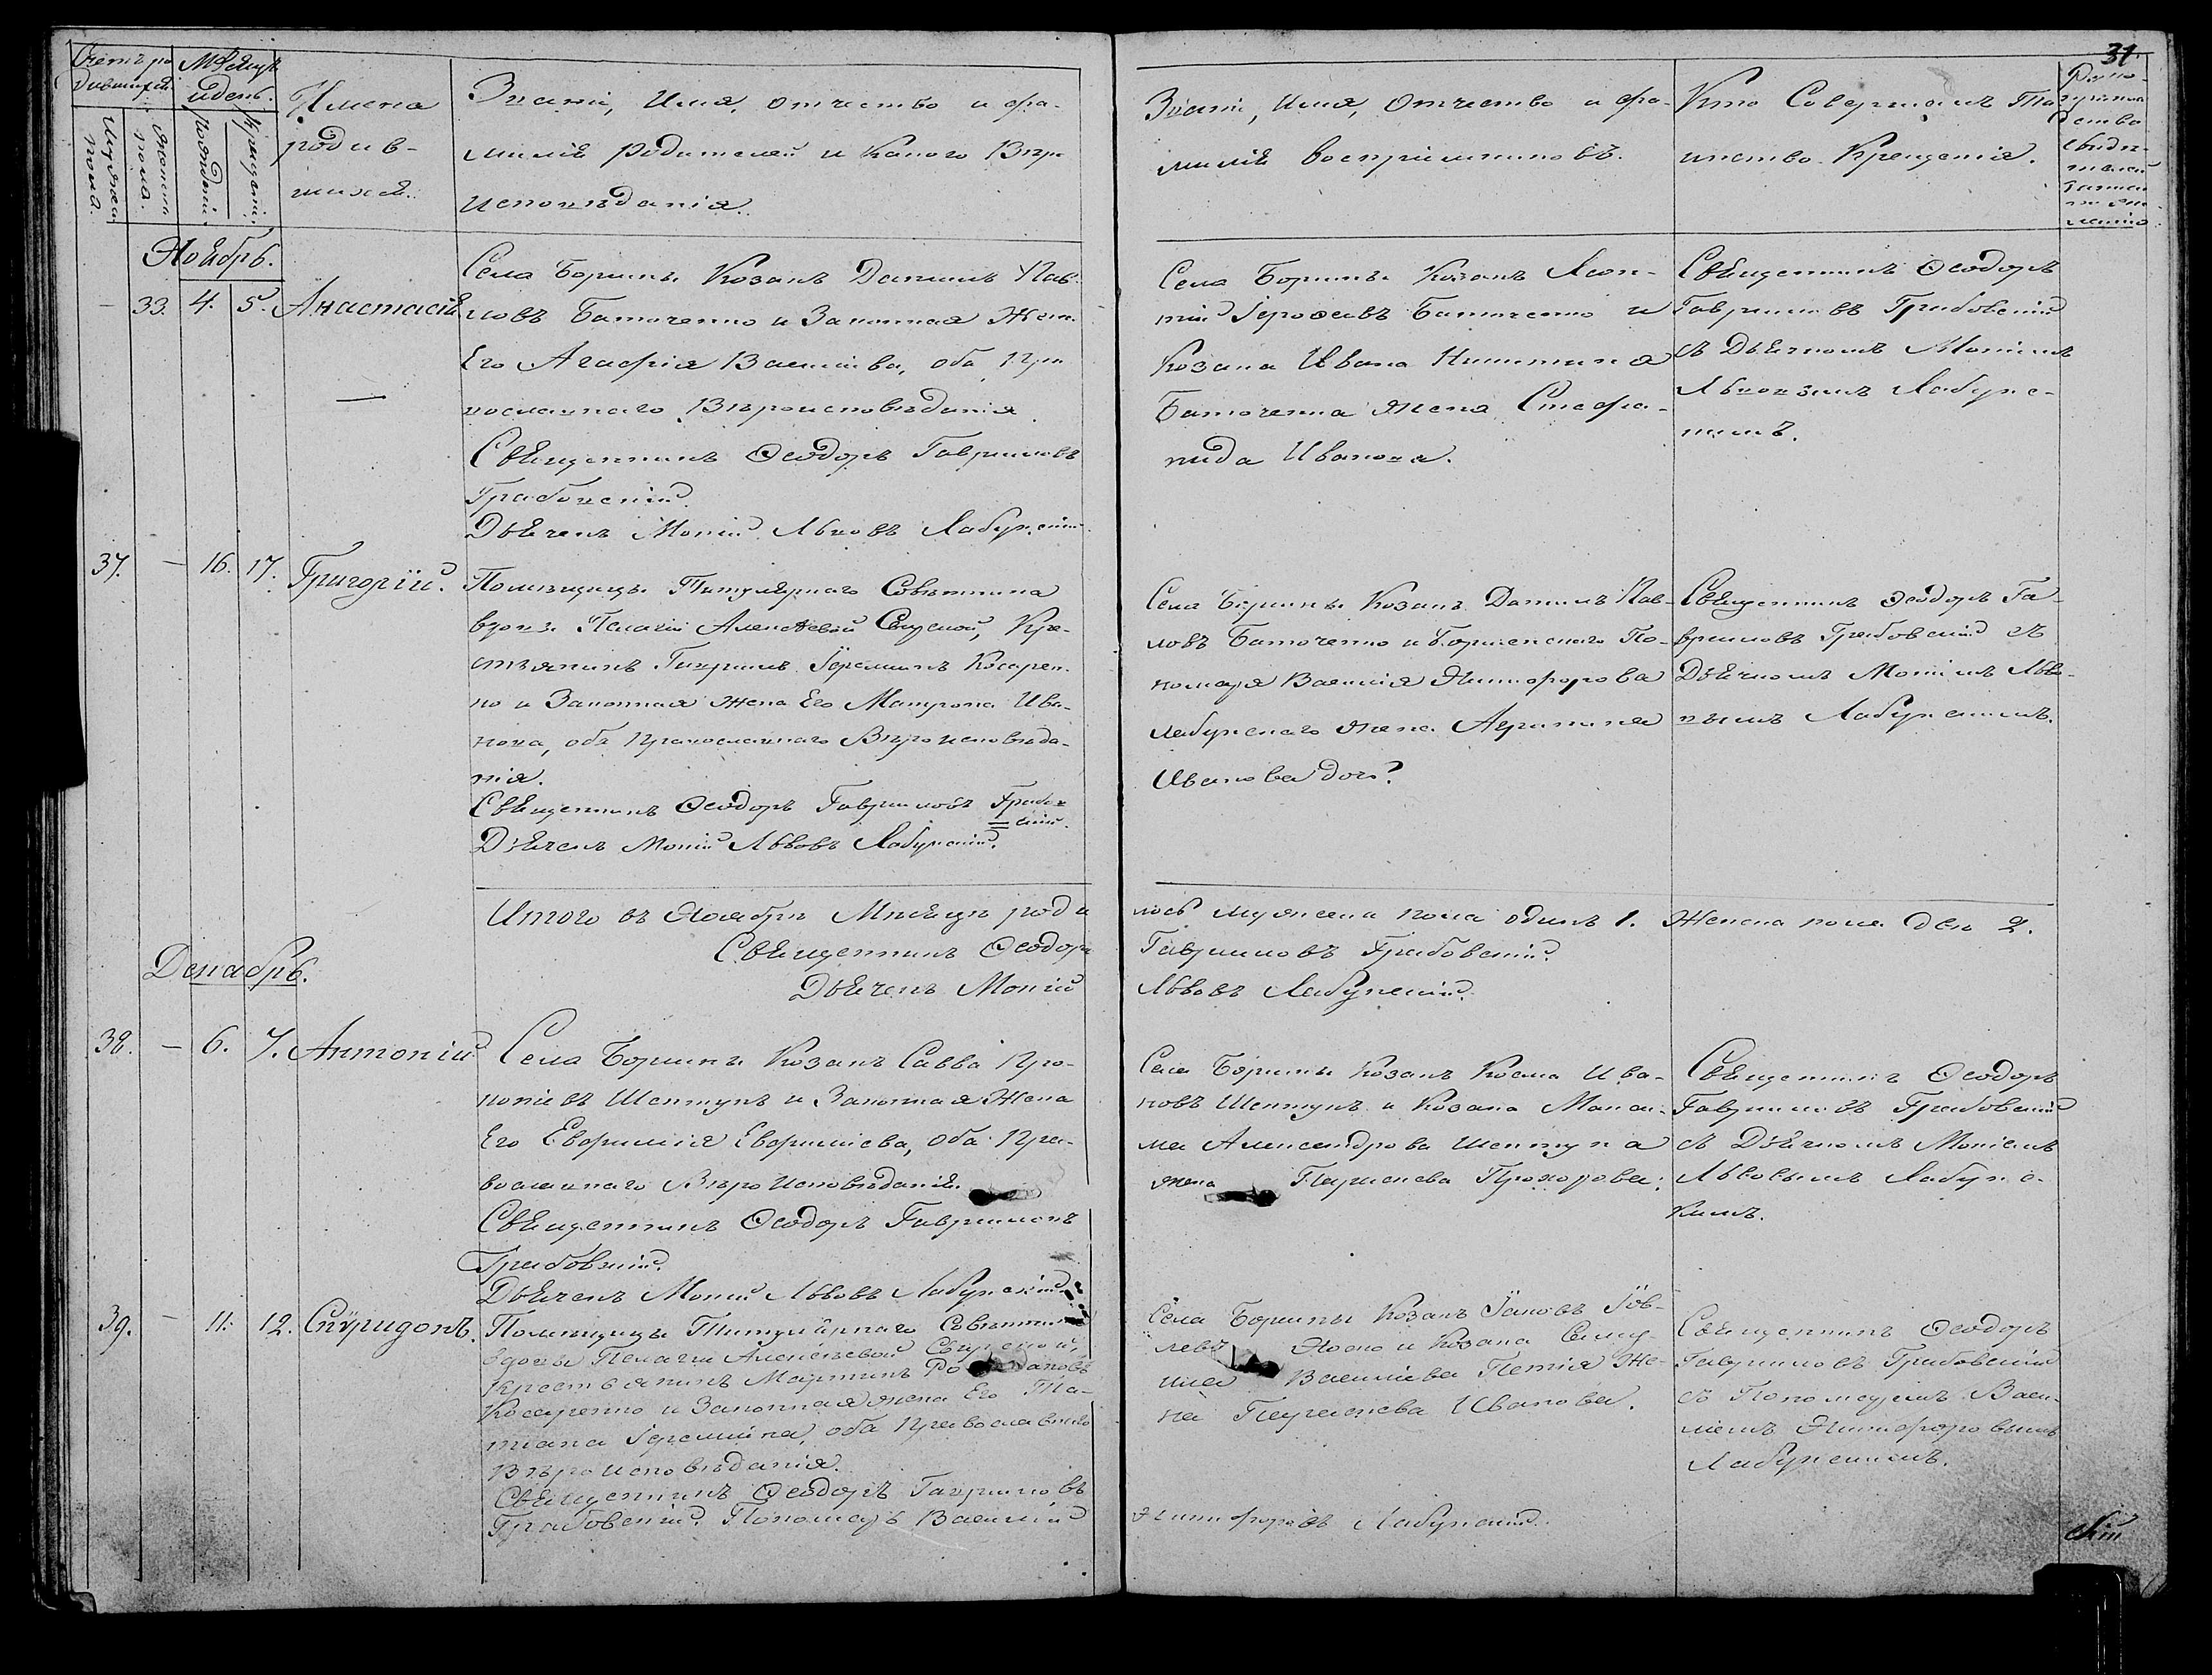 31
Счетъ ро
дившихся.
Мѣсяцъ
и день.
Мужеска
пола.
Женска
пола.
Рожденія.
Крещенія.
Имена
родив-
шихся.
Званіе, Имя, отчество и фа-
милія родителей и какого Вѣро
исповѣданія.
Званіе, Имя, Отчество и фа-
милія воспріемниковъ.
Кто Совершалъ Та
инство Крещенія.
Ноябрь.
33. 4. 5. Анастасія
Села Борины Козакъ Даніилъ Пав-
ловъ Баточенко и Законная Жена
Его Агафія Васильева, оба Пра
вославнаго Вѣроисповѣданія.
Священникъ Ѳеодоръ Гавриловъ
Грабовскій.
Дьячекъ Мокій Львовъ Лабунскій.
Села Борины Козакъ Леон-
тій Іерофеевъ Баточенко и
Козака Ивана Никитина
Баточенка жена Стефа-
нида Иванова.
Священникъ Ѳеодоръ
Гавриловъ Грабовскій
съ Дьячкомъ Мокіемъ
Львовымъ Лабунс-
кимъ.
37. — 16. 17. Григорій.
Помѣщицы Титулярнаго Совѣтника
вдовы Пелагіи Алексѣевой Кре-
стьянинъ Гавріилъ Іереміинъ Косарен-
ко и Законная жена Его Матрона Ива-
нова, оба Православнаго Вѣроисповѣда-
нія.
Священникъ Ѳеодоръ Гавриловъ Грабов
скій.
Дьячекъ Мокій Львовъ Лабунскій.
Села Борины Козакъ Даніилъ Пав-
ловъ Баточенко и Боринскаго По-
номаря Василія Никифорова
Лабунскаго жена Акулина
Иванова дочь.
Священникъ Ѳеодоръ Га-
вриловъ Грабовскій съ
Дьячкомъ Мокіемъ Льво-
вымъ Лабунскимъ.
Итого въ Ноябрѣ Мѣсяцѣ роди
лось мужеска пола одинъ 1. Женска пола две 2.
Священникъ Ѳеодоръ
Гавриловъ Грабовскій.
Дьячекъ Мокій
Львовъ Лабунскій.
Декабрь.
38. — 6. 7. Антоній
Села Борины Козакъ Савва Про-
копіевъ Шептунъ и Законная Жена
Его Евфимія Евфиміева, оба Пра-
вославнаго Вѣроисповѣданія.
Священникъ Ѳеодоръ Гавриловъ
Грабовскій.
Дьячекъ Мокій Львовъ Лабунскій.
Села Борины Козакъ Косма Ива-
новъ Шептунъ и Козака Макси-
ма Александрова Шептуна
жена Параскева Прохорова.
Священникъ Ѳеодоръ
Гавриловъ Грабовскій
съ Дьячкомъ Мокіемъ
Львовымъ Лабунс-
кимъ.
39. — 11. 12. Спѵридонъ.
Помѣщицы Титулярнаго Совѣтника
вдовы Пелагіи Алексѣевой
Крестьянинъ Мартинъ
Косаренко и Законная жена Его Та-
тіана Іереміина, оба Православнаго
Вѣроисповѣданія.
Священникъ Ѳеодоръ Гавриловъ
Грабовскій. Пономарь Василій
Села Борины Козакъ Іаковъ Іов-
левъ и Козака
Васильева Же-
на Параскева Иванова.
Никифоровъ Лабунскій.
Священникъ Ѳеодоръ
Гавриловъ Грабовскій
съ Пономаремъ Васи-
ліемъ Никифоровымъ
Лабунскимъ.